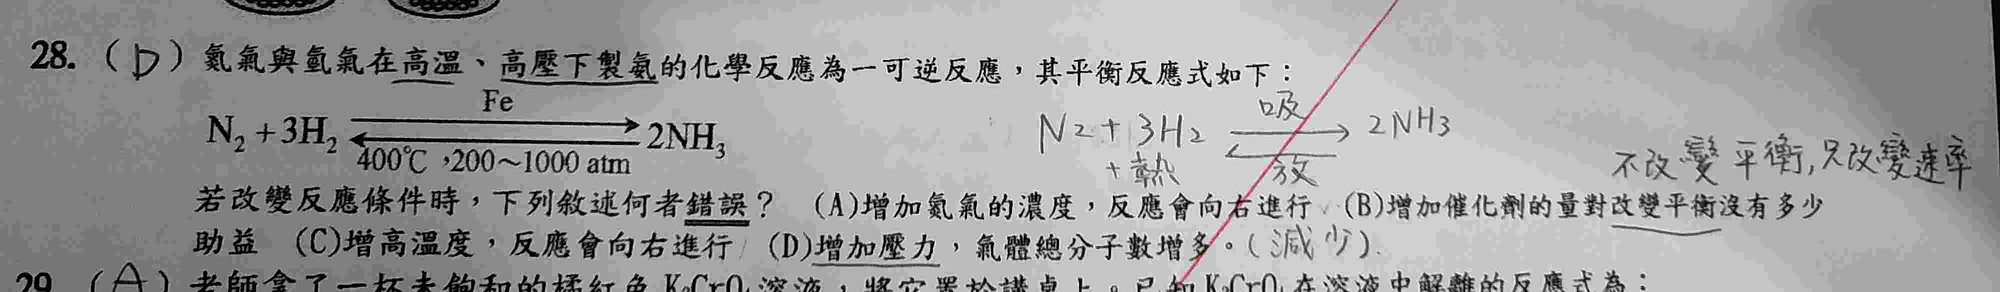 28. (D) 氮氣與氫氣在高溫、高壓下製氨的化學反應為一可逆反應，其平衡反應式如下：
Fe
N₂+3H₂ ⇌ 2NH₃
400℃，200～1000 atm
吸
N₂ + 3H₂ ⇌ 2NH₃
+熱 放
不改變平衡,只改變速率
若改變反應條件時，下列敘述何者錯誤？ (A)增加氮氣的濃度，反應會向右進行 (B)增加催化劑的量對改變平衡沒有多少
助益 (C)增高溫度，反應會向右進行 (D)增加壓力，氣體總分子數增多。(減少).
29. (A) 老師拿了一杯未飽和的橘紅色 K₂CrO₄ 溶液，將它置於講桌上。已知 K₂CrO₄ 在溶液中解離的反應式為：